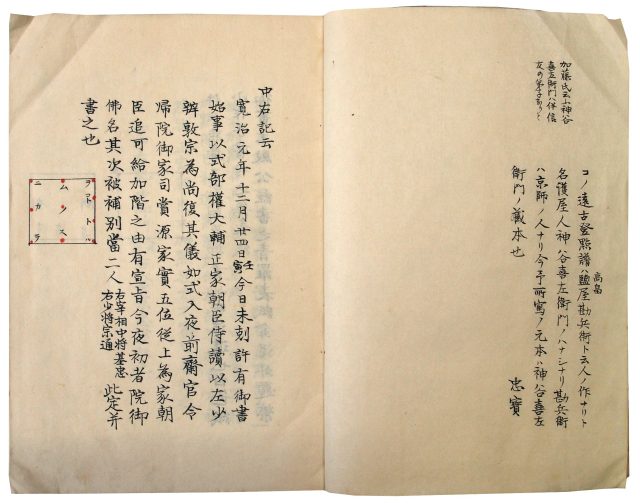 加藤氏云神谷
喜左衛門ハ伴信
友の弟子なりと
コノ遠古登點譜ハ鹽屋勘兵衛ト云人ノ作ナリト
高畠
名護屋人神谷喜左衛門ノハナシナリ勘兵衛
ハ京師ノ人ナリ今予所寫ノ元本ハ神谷喜左
衛門ノ藏本也
忠寶
中右記云
寛治元年十二月廿四日壬寅今日未刻許有御書
始事以式部權大輔正家朝臣侍讀以左少
辨敦宗為尚復其儀如式入夜前齋官令
帰院御家司賞源家實五位従上為家朝
臣追可給加階之由有宣旨今夜初者院御
佛名其次被補別當二人右宰相中将基忠右少将宗通此定并
書之也
ヲコトト ハ
ム ノ ス
ニ カ ラ